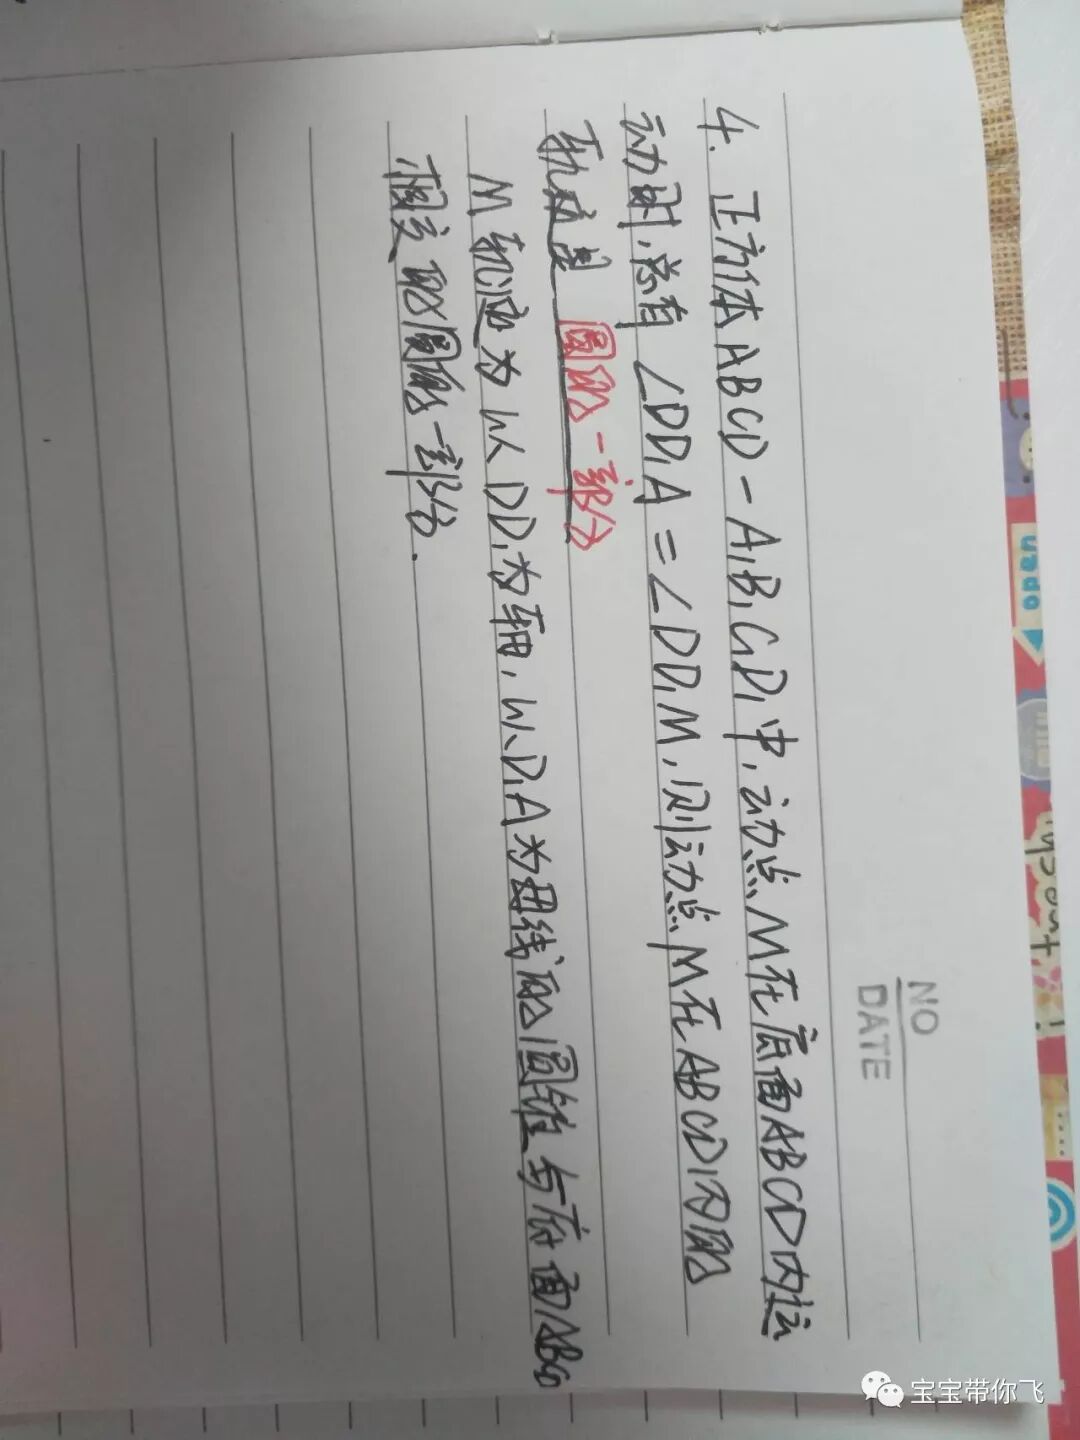 NO
DATE
4. 正方体ABCD-A₁B₁C₁D₁中,动点M在底面ABCD内运
动时,总有∠DD₁A=∠DD₁M,则动点M在ABCD内的
轨迹是 圆的一部分
M轨迹为以DD₁为轴,以D₁A为母线的圆锥与底面ABCD
相交的圆的一部分.
usdo
宝宝带你飞